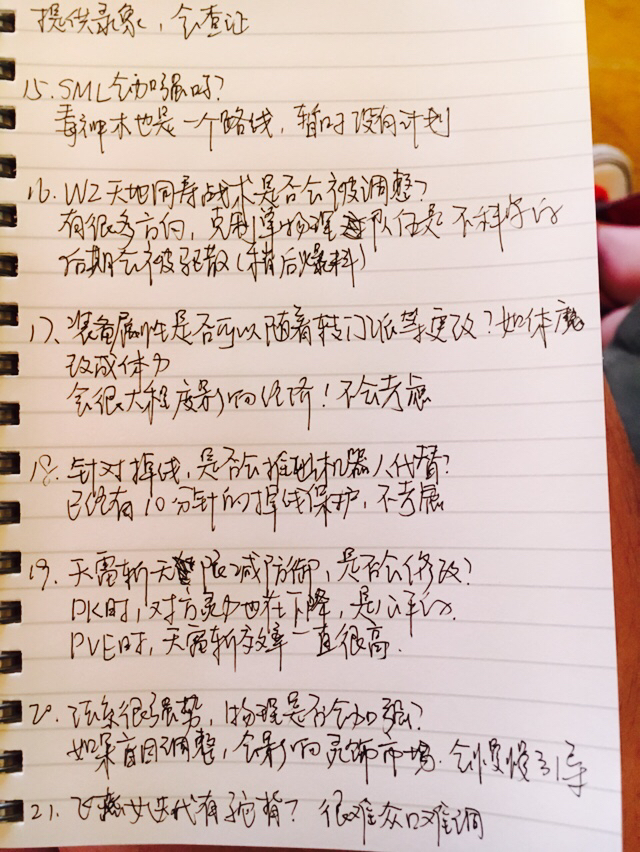 提供录象,会查证
15.SML会加强吗?
毒神木也是一个路线,暂时没有计划
16.WZ天地同寿战术是否会被调整?
有很多方向,克制单物理队伍是不科学的
后期会被驱散(稍后爆料)
17、装备属性是否可以随着转门派等更改?如体魔
改成体力
会很大程度影响经济!不会考虑
18.针对掉线,是否会推出机器人代替?
已经有10分钟的掉线保护,不考虑
19.天雷斩无限减防御,是否会修改?
PK时,对方灵力也在下降,是
PVE时,天雷斩效率一直很高.
20.法系很强势,物理是否会加强?
如果盲目调整,会影响灵饰市场.会慢慢引导
21.飞燕女迭代有驼背?很难众口难调